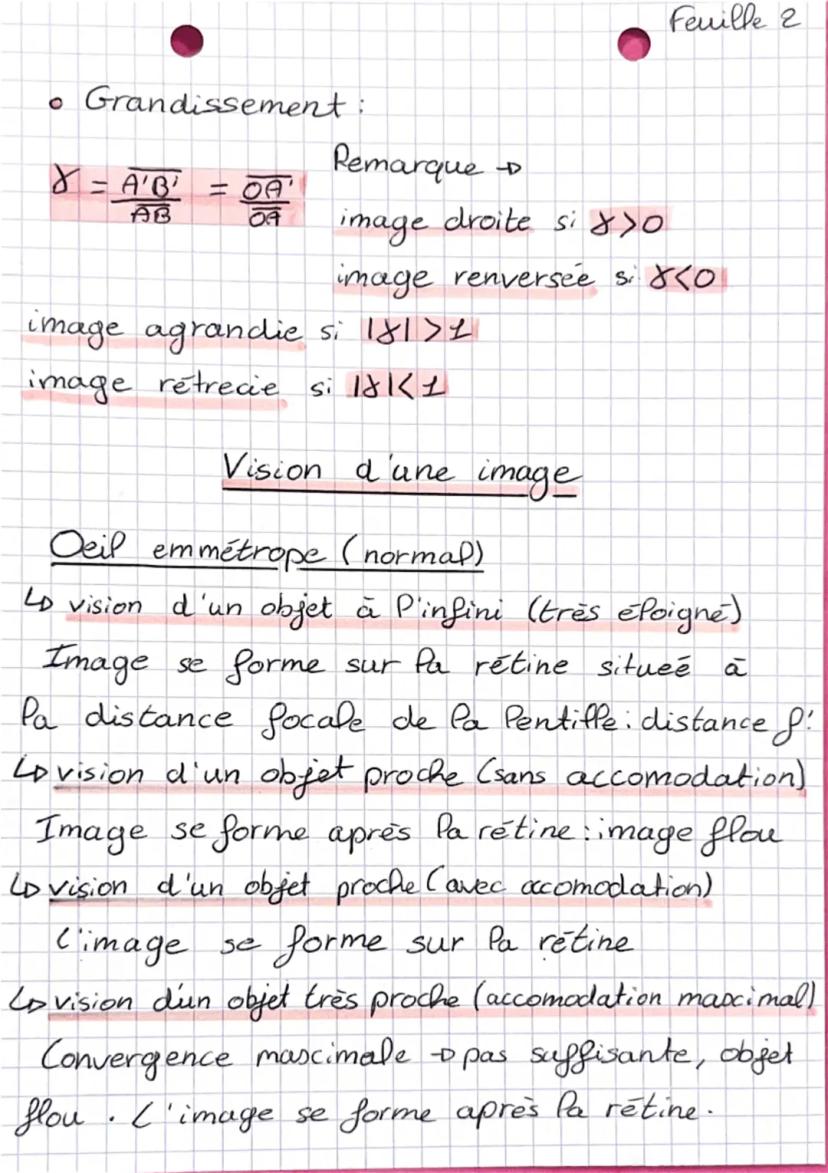 Feuille 2
• Grandissement :
γ = A'B' / AB = OA' / OA
Remarque →
image droite si γ>0
image renversée si γ<0
image agrandie si |γ|>1
image rétrecie si |γ|<1
Vision d'une image
Oeil emmétrope (normal)
↳ vision d'un objet à l'infini (très éloigné)
Image se forme sur la rétine situeé à
la distance focale de la lentille : distance f'
↳ vision d'un objet proche (sans accomodation)
Image se forme après la rétine : image flou
↳ vision d'un objet proche (avec accomodation)
L'image se forme sur la rétine
↳ vision d'un objet très proche (accomodation maximal)
Convergence maximale → pas suffisante, objet
flou . L'image se forme après la rétine.